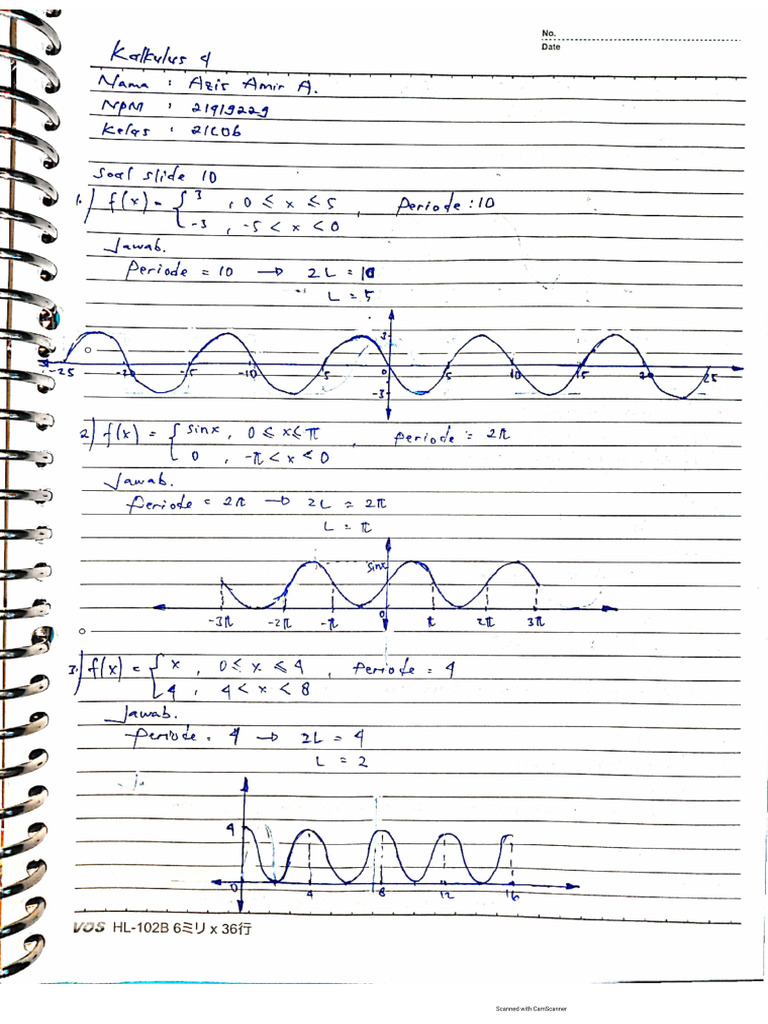 No.
Date
Kalkulus 4
Nama : Azis Amir A.
NPM : 21419229
Kelas : 2IC06
Soal slide 10
1.) f(x) = { 3 , 0 ≤ x ≤ 5 , Periode : 10
-3 , -5 < x < 0
Jawab.
Periode = 10 → 2L = 10
L = 5
3
-25 -20 -5 -10 5 0 5 10 15 20 25
-3
2) f(x) = { sinx , 0 ≤ x ≤ π , periode = 2π
0 , -π < x < 0
Jawab.
Periode = 2π → 2L = 2π
L = π
sinx
-3π -2π -π 0 π 2π 3π
3.) f(x) = { x , 0 ≤ x ≤ 4 , Periode = 4
4 , 4 < x < 8
Jawab.
Periode = 4 → 2L = 4
L = 2
4
0 4 8 12 16
VOS HL-102B 6ミリ x 36行
Scanned with CamScanner